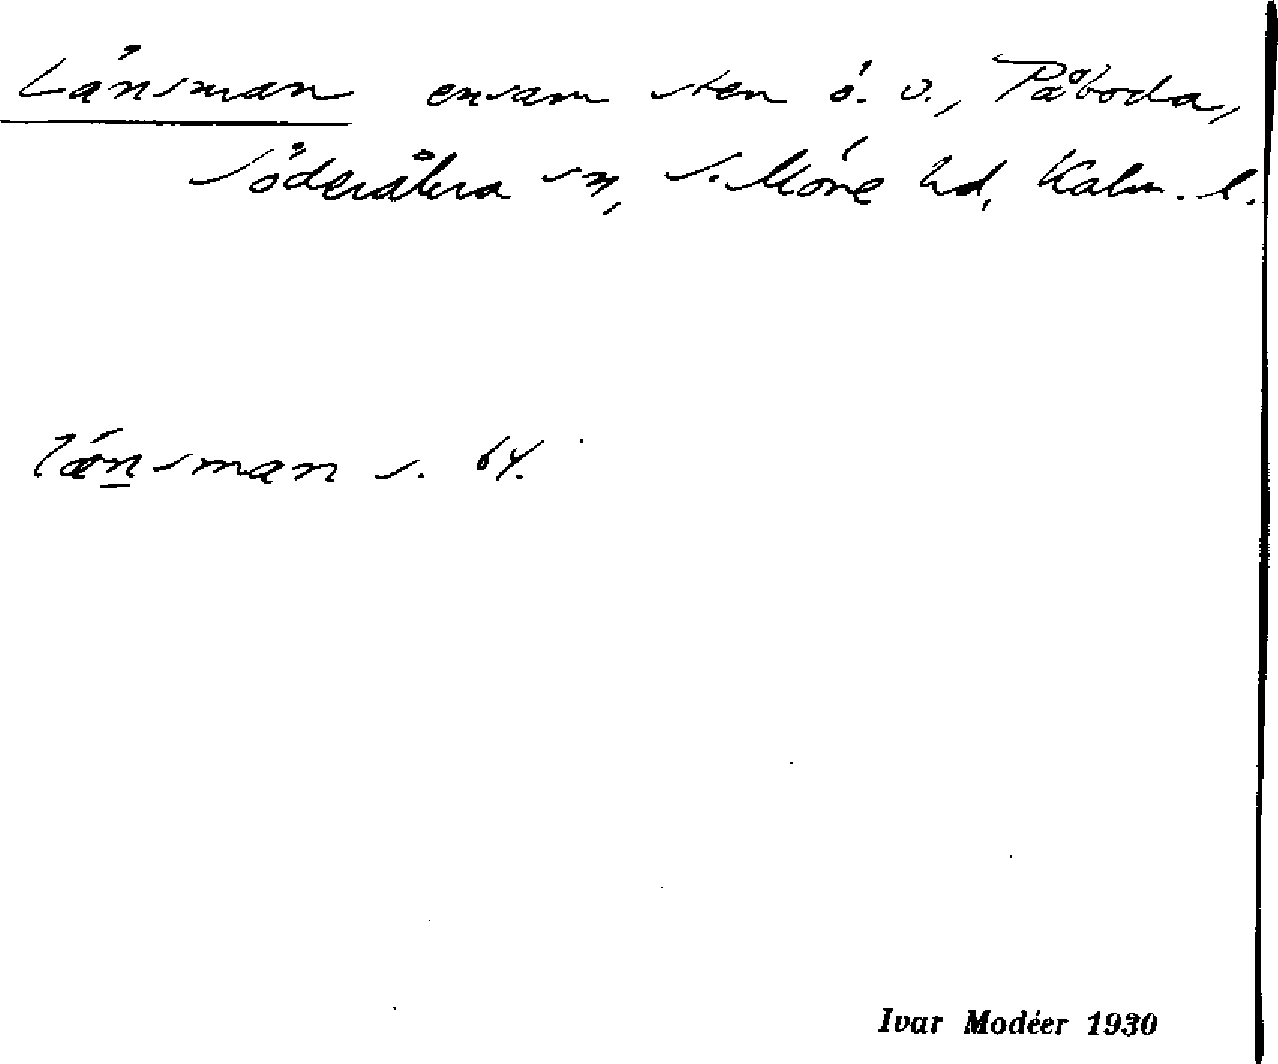 Länsman ensam sten ö. v., Påboda,
Söderåkra sn, S. Möre hd, Kalm. l.
länsman s. 64.
Ivar Modéer 1930